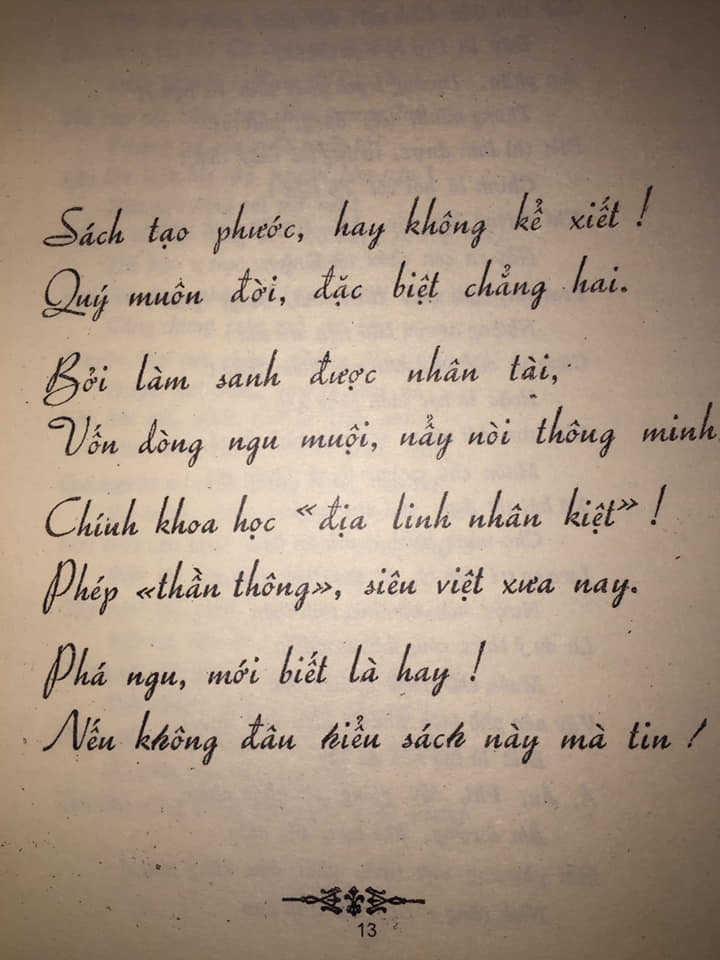 Sách tạo phước, hay không kể xiết !
Quý muôn đời, đặc biệt chẳng hai.
Bởi làm sanh được nhân tài,
Vốn dòng ngu muội, nẩy nòi thông minh.
Chính khoa học «địa linh nhân kiệt» !
Phép «thần thông», siêu việt xưa nay.
Phá ngu, mới biết là hay !
Nếu không đâu kiểu sách này mà tin !
13